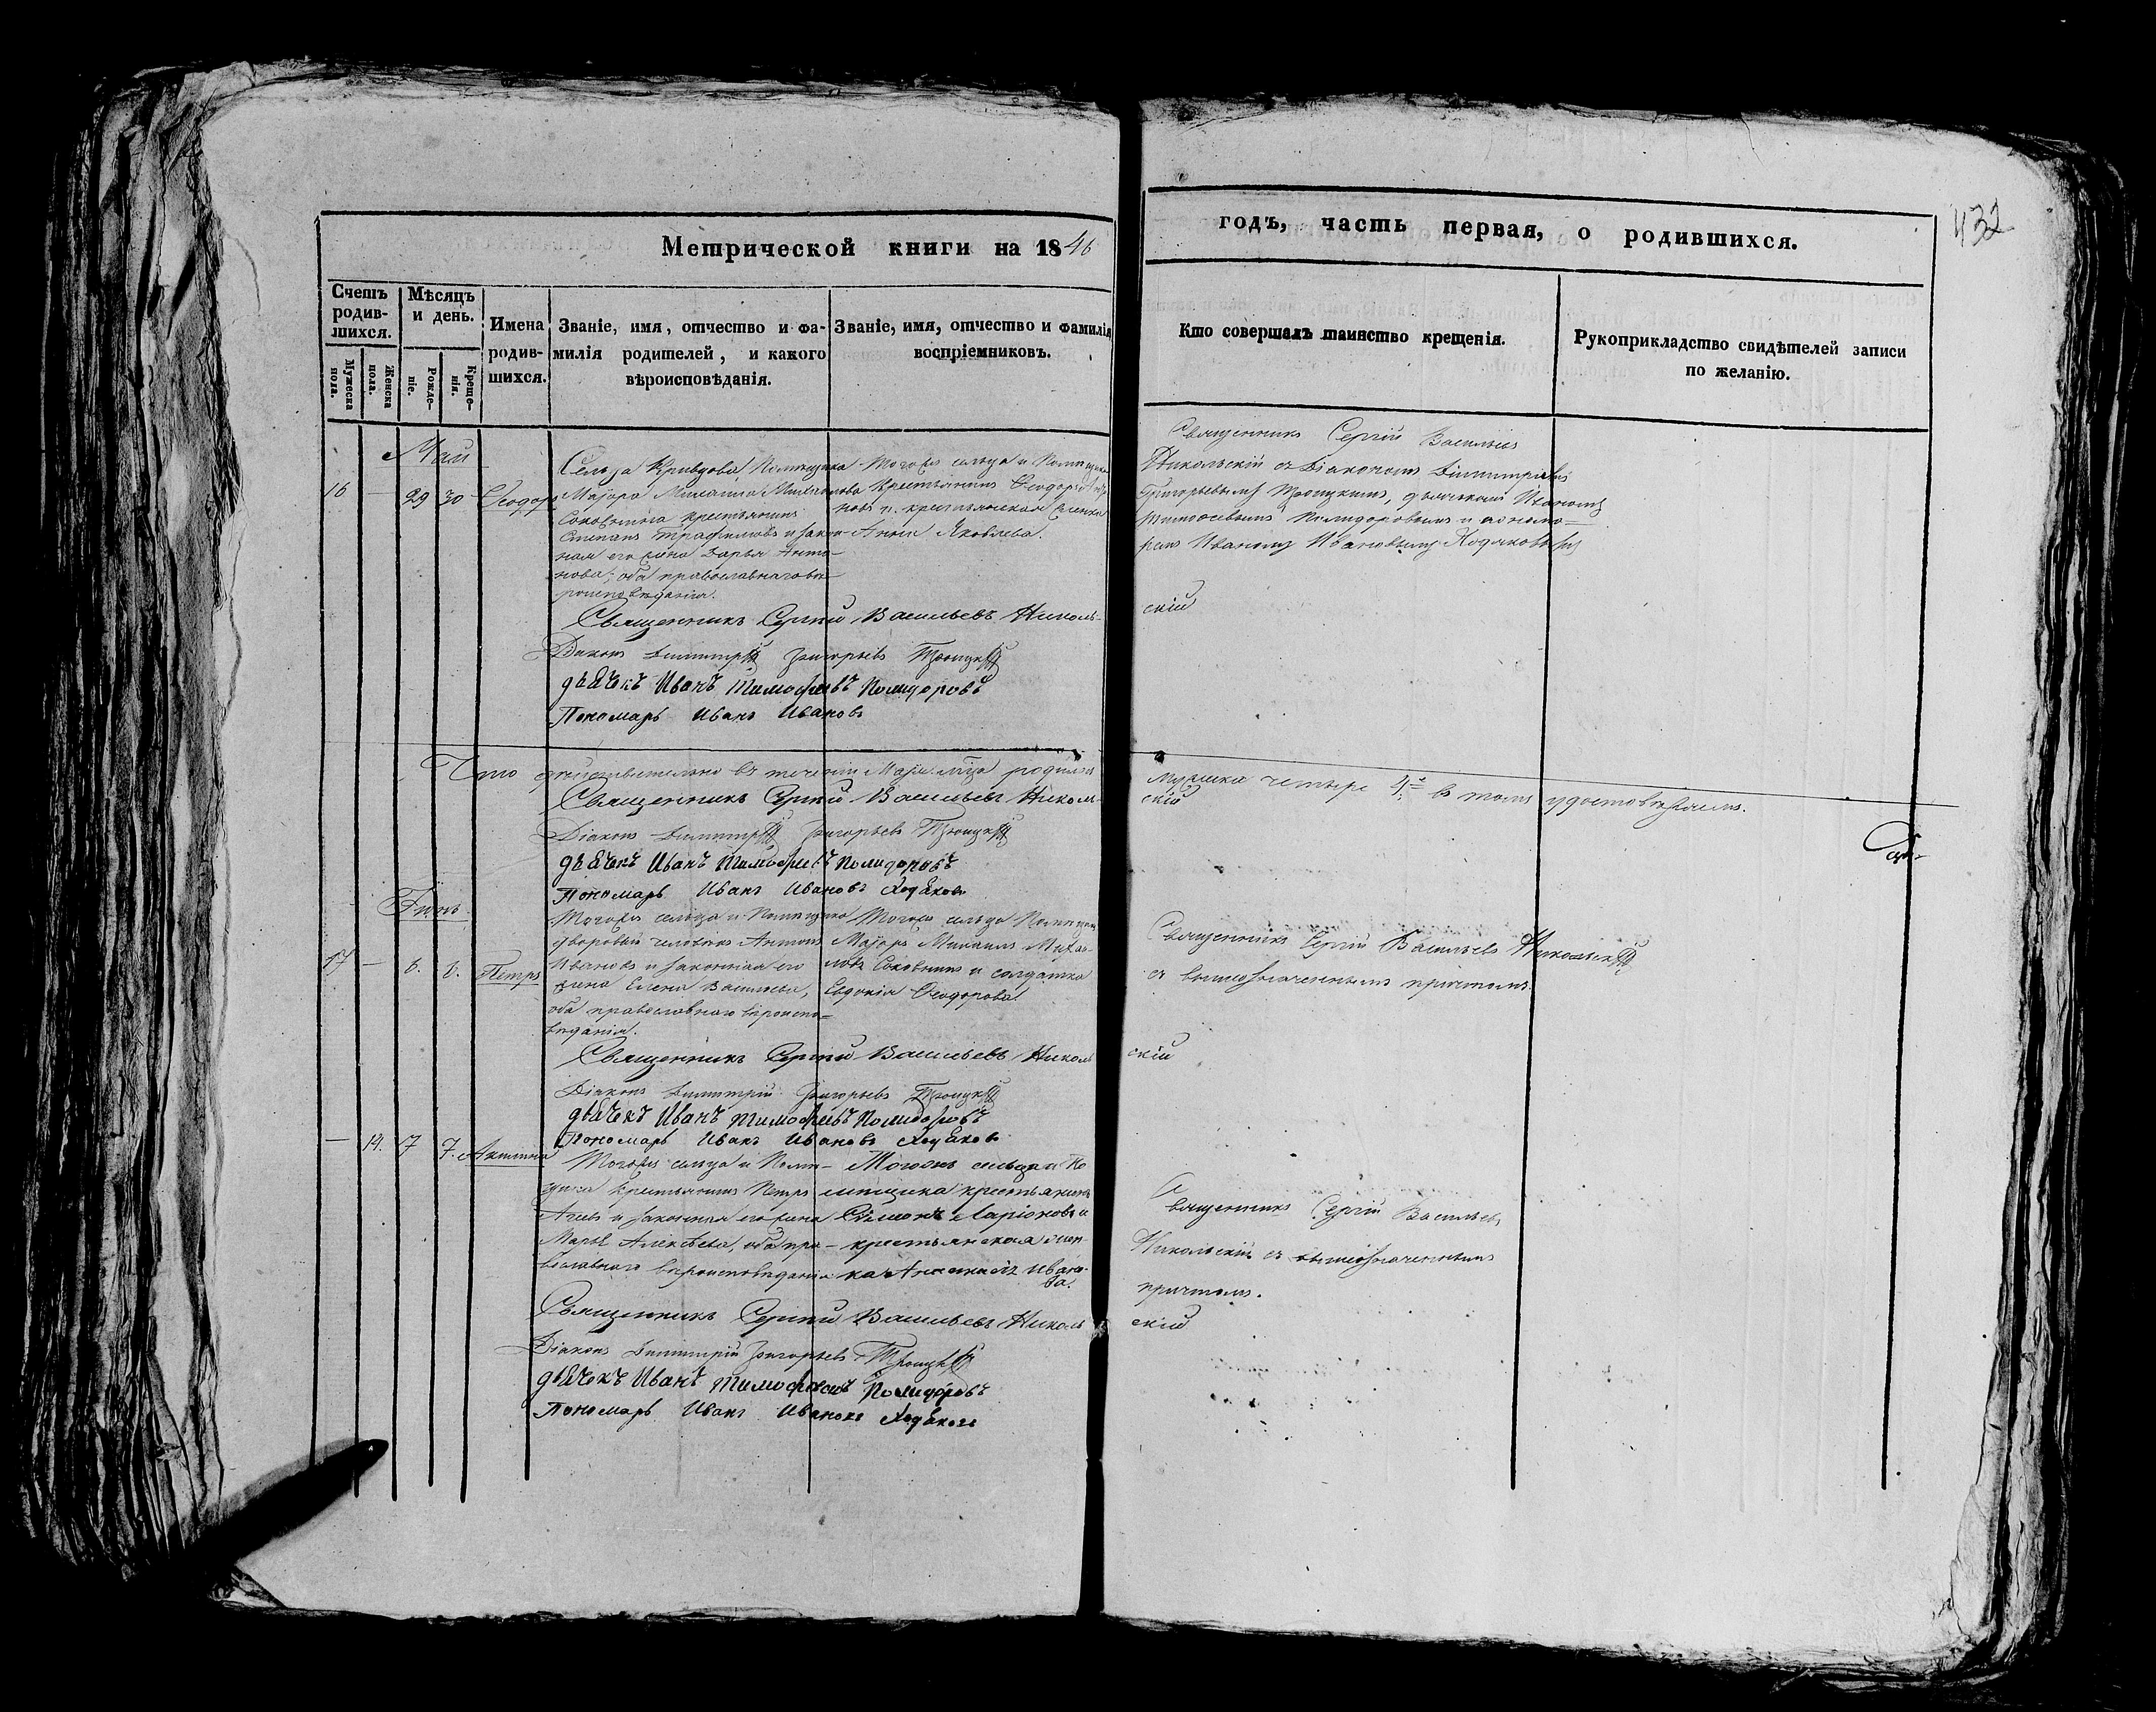 Метрической книги на 1846
годъ, часть первая, о родившихся.
432
Счетъ родив-шихся.
Мужеска пола.
Женска пола.
Мѣсяцъ и день.
Рожде-ніе.
Креще-нія.
Имена родив-шихся.
Званіе, имя, отчество и фа-
милія родителей, и какого
вѣроисповѣданія.
Званіе, имя, отчество и фамилія
воспріемниковъ.
Кто совершалъ таинство крещенія.
Рукоприкладство свидѣтелей записи
по желанію.
Май
16 — 29 30 Ѳеодоръ
Сельца Кривцова Помѣщика
Маіора Михаила Михайлова
Соковнина крестьянинъ
Степанъ Трофимовъ и закон-
ная его жена Дарья Анто-
нова; оба православнаго вѣ-
роисповѣданія.
Тогожъ сельца и Помѣщика
Крестьянинъ Ѳеодоръ
новъ и крестьянская
Анна Яковлева.
Священникъ Сергій Васильевъ
Никольскій съ Діакономъ Димитріемъ
Григорьевымъ Троицкимъ, дьячкомъ Иваномъ
Тимофеевымъ Полидоровымъ и понома-
ремъ Иваномъ Ивановымъ Ходяковымъ
Священникъ Сергій Васильевъ Николь-
скій
Діаконъ Димитрій Григорьевъ Троицкій
дьячекъ Иванъ Тимофеевъ Полидоровъ
Пономарь Иванъ Ивановъ
Что дѣйствительно въ теченіи Маія мѣсяца родилось
мужеска четыре 4: въ томъ удостовѣряемъ.
Священникъ Сергій Васильевъ Николь-
скій
Діаконъ Димитрій Григорьевъ Троицкій
дьячекъ Иванъ Тимофеевъ Полидоровъ
Пономарь Иванъ Ивановъ Ходяковъ
Іюнь
17 — 6. 6. Петръ
Тогожъ сельца и Помѣщика
дворовый человѣкъ Антонъ
Ивановъ и законная его
жена Елена Васильева,
оба православнаго вѣроиспо-
вѣданія.
Тогожъ сельца Помѣщикъ
Маіоръ Михаилъ Михай-
ловъ Соковнинъ и солдатка
Евдокія Ѳеодорова
Священникъ Сергій Васильевъ Никольскій
съ вышеозначеннымъ причтомъ.
Священникъ Сергій Васильевъ Николь
скій
Діаконъ Димитрій Григорьевъ Троицкій
дьячекъ Иванъ Тимофеевъ Полидоровъ
Пономарь Иванъ Ивановъ Ходяковъ
— 14. 7 7. Акилина
Тогожъ сельца и Помѣ-
щика крестьянинъ Петръ
и законная его жена
Марья Алексѣева, оба пра-
вославнаго вѣроисповѣданія
Тогожъ сельца и По
мѣщика крестьянинъ
Симонъ Ларіоновъ и
крестьянская жен-
ка Ивано-
ва.
Священникъ Сергій Васильевъ
Никольскій съ вышеозначеннымъ
причтомъ.
Священникъ Сергій Васильевъ Николь
скій
Діаконъ Димитрій Григорьевъ Троицкій
дьячекъ Иванъ Тимофеевъ Полидоровъ
Пономарь Иванъ Ивановъ Ходяковъ